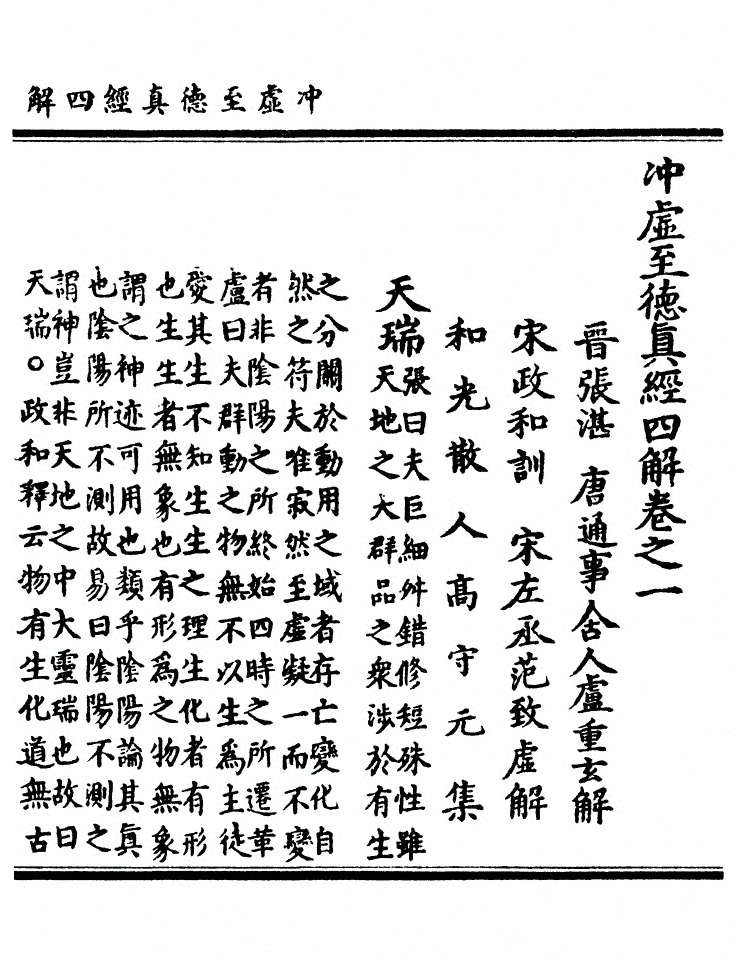 冲虛至德真經四解
冲虛至德眞經四解卷之一
晉張湛　唐通事舍人盧重玄解
宋政和訓　宋左丞范致虛解
和光散人高守元集
天瑞張曰夫巨細舛錯修短殊性雖
天地之大群品之衆涉於有生
之分關於動用之域者存亡變化自
然之符夫唯寂然至虛凝一而不變
者非陰陽之所終始四時之所遷革
盧曰夫群動之物無不以生爲主徒
愛其生不知生生之理生化者有形
也生生者無象也有形爲之物無象
謂之神迹可用也類乎陰陽論其眞
也陰陽所不測故易曰陰陽不測之
謂神豈非天地之中大靈瑞也故曰
天瑞○政和釋云物有生化道無古